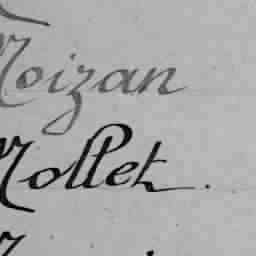 Moizan
Mollet.